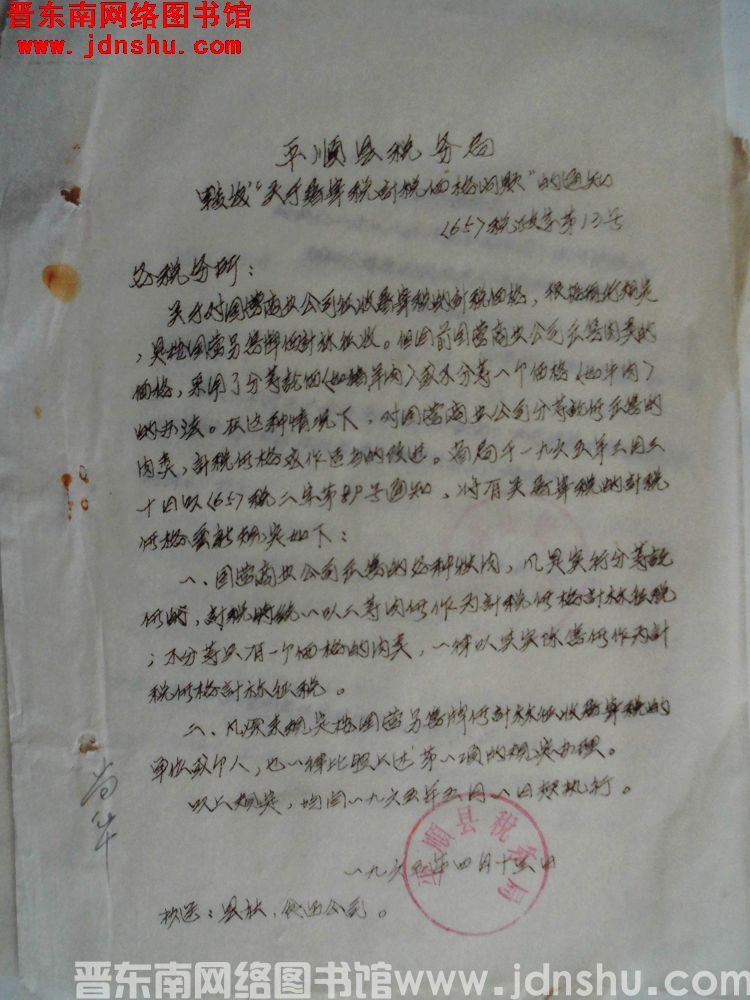 晋东南网络图书馆
www.jdnshu.com
平顺县税务局
转发“关于屠宰税计税价格问题”的通知
〈65〉税政字第13号
各税务所：
关于对国营商业公司征收屠宰税的计税价格，根据
，是按国营另售牌价计算征收。但目前国营商业公司另售肉类的
価格，采用了分等论価〈如猪羊肉〉或不分等一个価格〈如牛肉〉
的办法。在这种情况下，对国营商业公司分等论价另售的
肉类，計税价格应作适当的改进。省局于一九六五年三月三
十日以〈65〉税二字第89号通知，将有关屠宰税的計税
价格重新规定如下：
一、国营商业公司另售的各种牲肉，凡是实行分等論
价的，計税时统一以二等肉价作为計税价格計算征税
；不分等只有一个価格的肉类，一律以其实际售价作为計
税价格計算征税。
二、凡原来规定按国营另售牌价計算征收屠宰税的
单位或个人，也一律比照上述第一项的规定办理。
以上规定，均自一九六五年五月一日起执行。
一九六五年四月十六日
平顺县税务局
抄送：县社、食品公司。
晋东南网络图书馆www.jdnshu.com